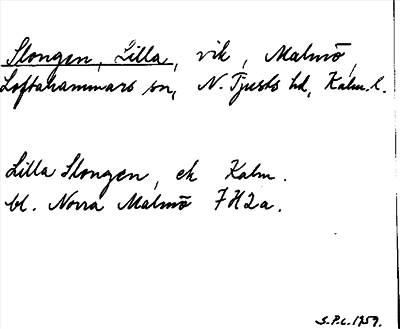 Slongen, Lilla, vik, Malmö,
Loftahammars sn, N. Tjusts hd, Kalm. l.
Lilla Slongen, ek Kalm.
bl. Norra Malmö 7H2a.
S.P.L. 1959.